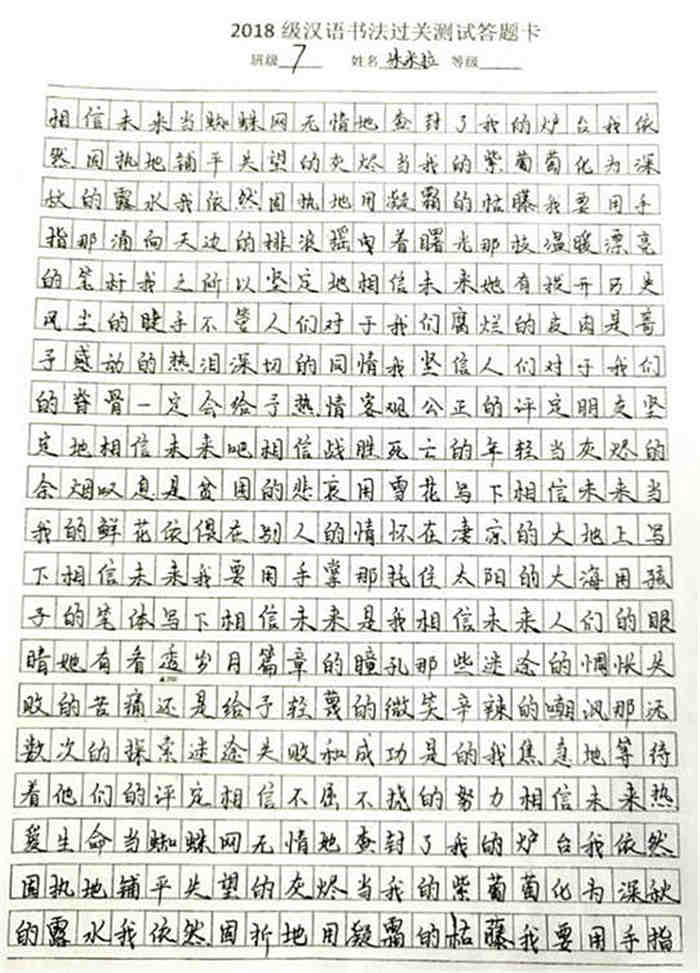 2018级汉语书法过关测试答题卡
班级 7 姓名 米拉 等级
相信未来当蜘蛛网无情地查封了我的炉台我依
然固执地铺平失望的灰烬当我的紫葡萄化为深
秋的露水我依然固执地用凝霜的枯藤我要用手
指那涌向天边的排浪摇曳着曙光那枝温暖漂亮
的笔杆我之所以坚定地相信未来她有拨开历史
风尘的睫手不管人们对于我们腐烂的皮肉是寄
予感动的热泪深切的同情我坚信人们对于我们
的脊骨一定会给予热情客观公正的评定朋友坚
定地相信未来吧相信战胜死亡的年轻当灰烬的
余烟叹息是贫困的悲哀用雪花写下相信未来当
我的鲜花依偎在别人的情怀在凄凉的大地上写
下相信未来我要用手掌那托住太阳的大海用孩
子的笔体写下相信未来是我相信未来人们的眼
睛她有看透岁月篇章的瞳孔那些迷途的惆怅失
败的苦痛还是给予轻蔑的微笑辛辣的嘲讽那无
数次的探索迷途失败和成功是的我焦急地等待
着他们的评定相信不屈不挠的努力相信未来热
爱生命当蜘蛛网无情地查封了我的炉台我依然
固执地铺平失望的灰烬当我的紫葡萄化为深秋
的露水我依然固折地用凝霜的枯藤我要用手指